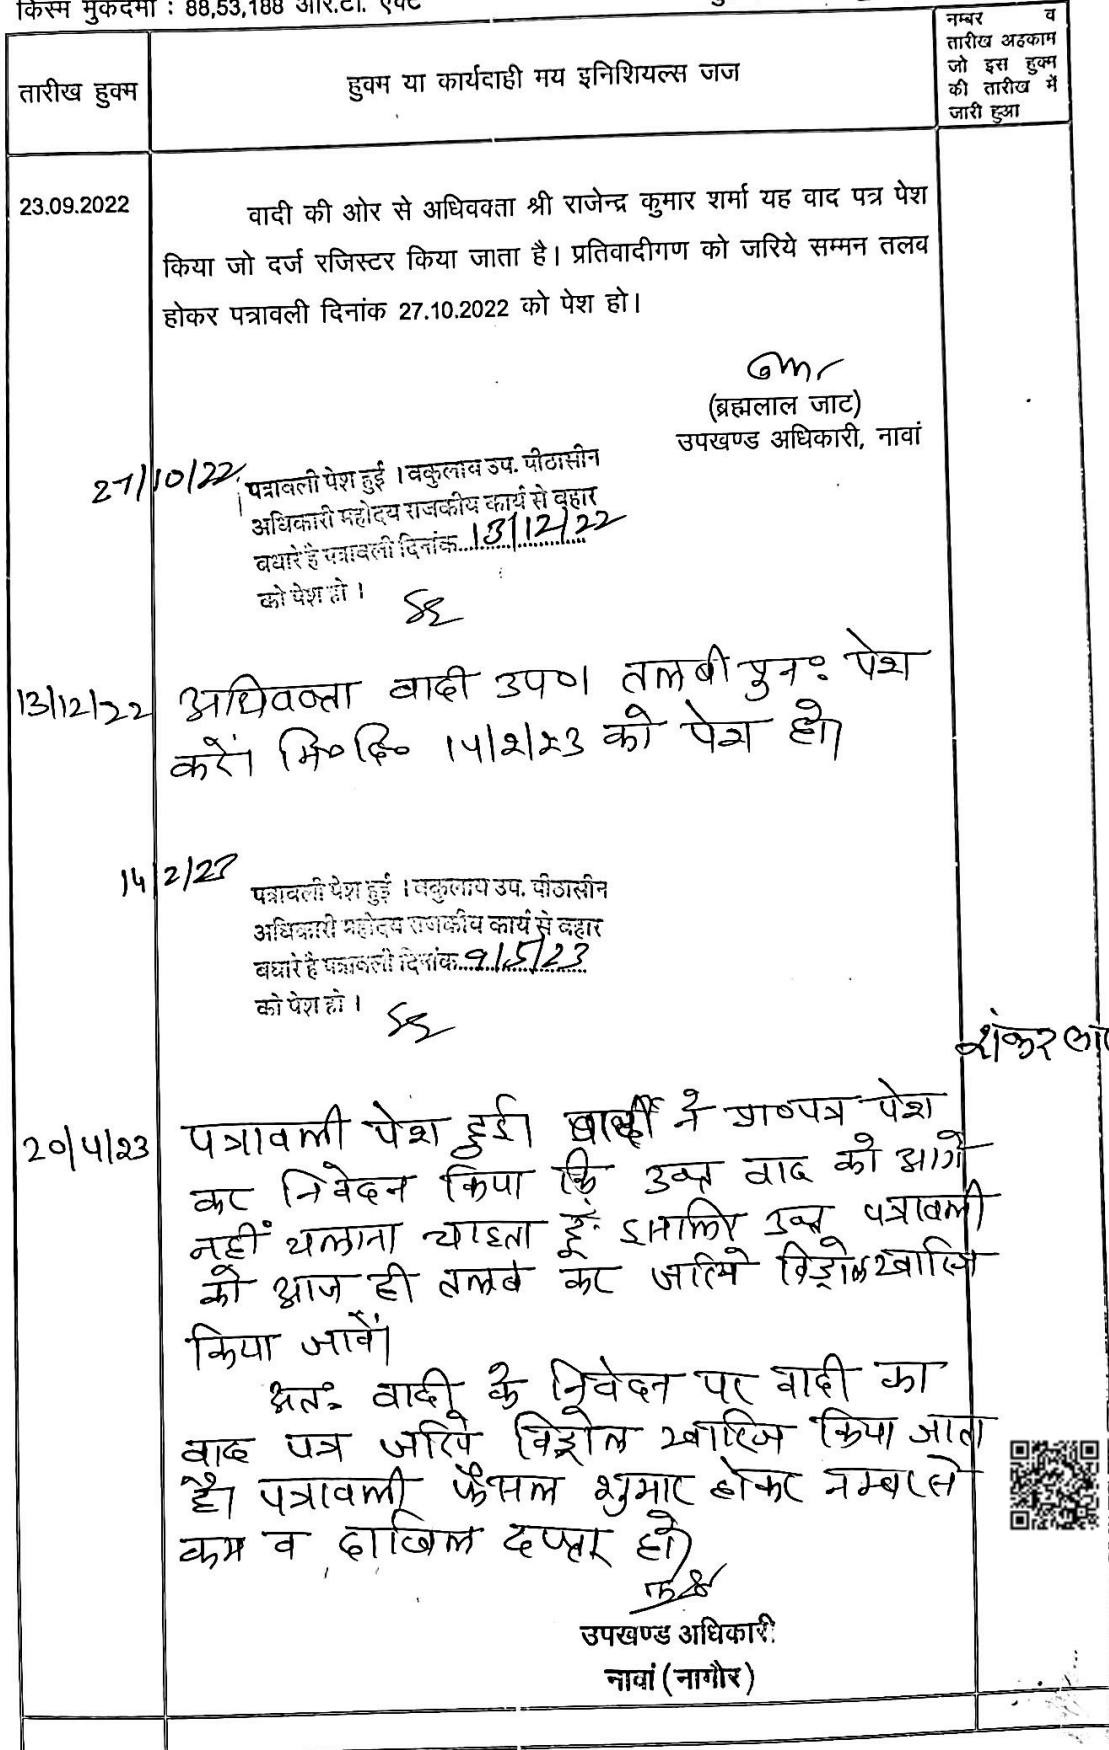 किस्म मुकदमा : 88,53,188 आर.टी. एक्ट
तारीख हुक्म
हुक्म या कार्यदाही मय इनिशियल्स जज
नम्बर व
तारीख अहकाम
जो इस हुक्म
की तारीख में
जारी हुआ
23.09.2022
वादी की ओर से अधिवक्ता श्री राजेन्द्र कुमार शर्मा यह वाद पत्र पेश
किया जो दर्ज रजिस्टर किया जाता है। प्रतिवादीगण को जरिये सम्मन तलव
होकर पत्रावली दिनांक 27.10.2022 को पेश हो।
(ब्रह्मलाल जाट)
उपखण्ड अधिकारी, नावां
27/10/22
पत्रावली पेश हुई । वकुलाय उप. पीठासीन
अधिकारी महोदय राजकीय कार्य से वहार
बधारे है पत्रावली दिनांक 13/12/22
को पेश हो ।
13/12/22
अधिवक्ता वादी उप०। तलबी पुन: पेश
करें। मि० दि० 14/2/23 को पेश हो।
14/2/23
पत्रावली पेश हुई । वकुलाय उप. पीठासीन
अधिकारी महोदय राजकीय कार्य से वहार
बधारे है पत्रावली दिनांक 9/5/23
को पेश हो ।
शंकर ला
20/4/23
पत्रावली पेश हुई। वादी ने प्रा०पत्र पेश
कर निवेदन किया कि उक्त वाद को आगे
नहीं चलाना चाहता हूँ इसलिए उक्त पत्रावली
को आज ही तलब कर जरिये विड्रोल खारिज
किया जावें।
अतः वादी के निवेदन पर वादी का
वाद पत्र जरिये विड्रोल खारिज किया जाता
है। पत्रावली फैसल शुमार होकर नम्बर से
कम व दाखिल दफ्तर हो।
उपखण्ड अधिकारी
नावां (नागौर)